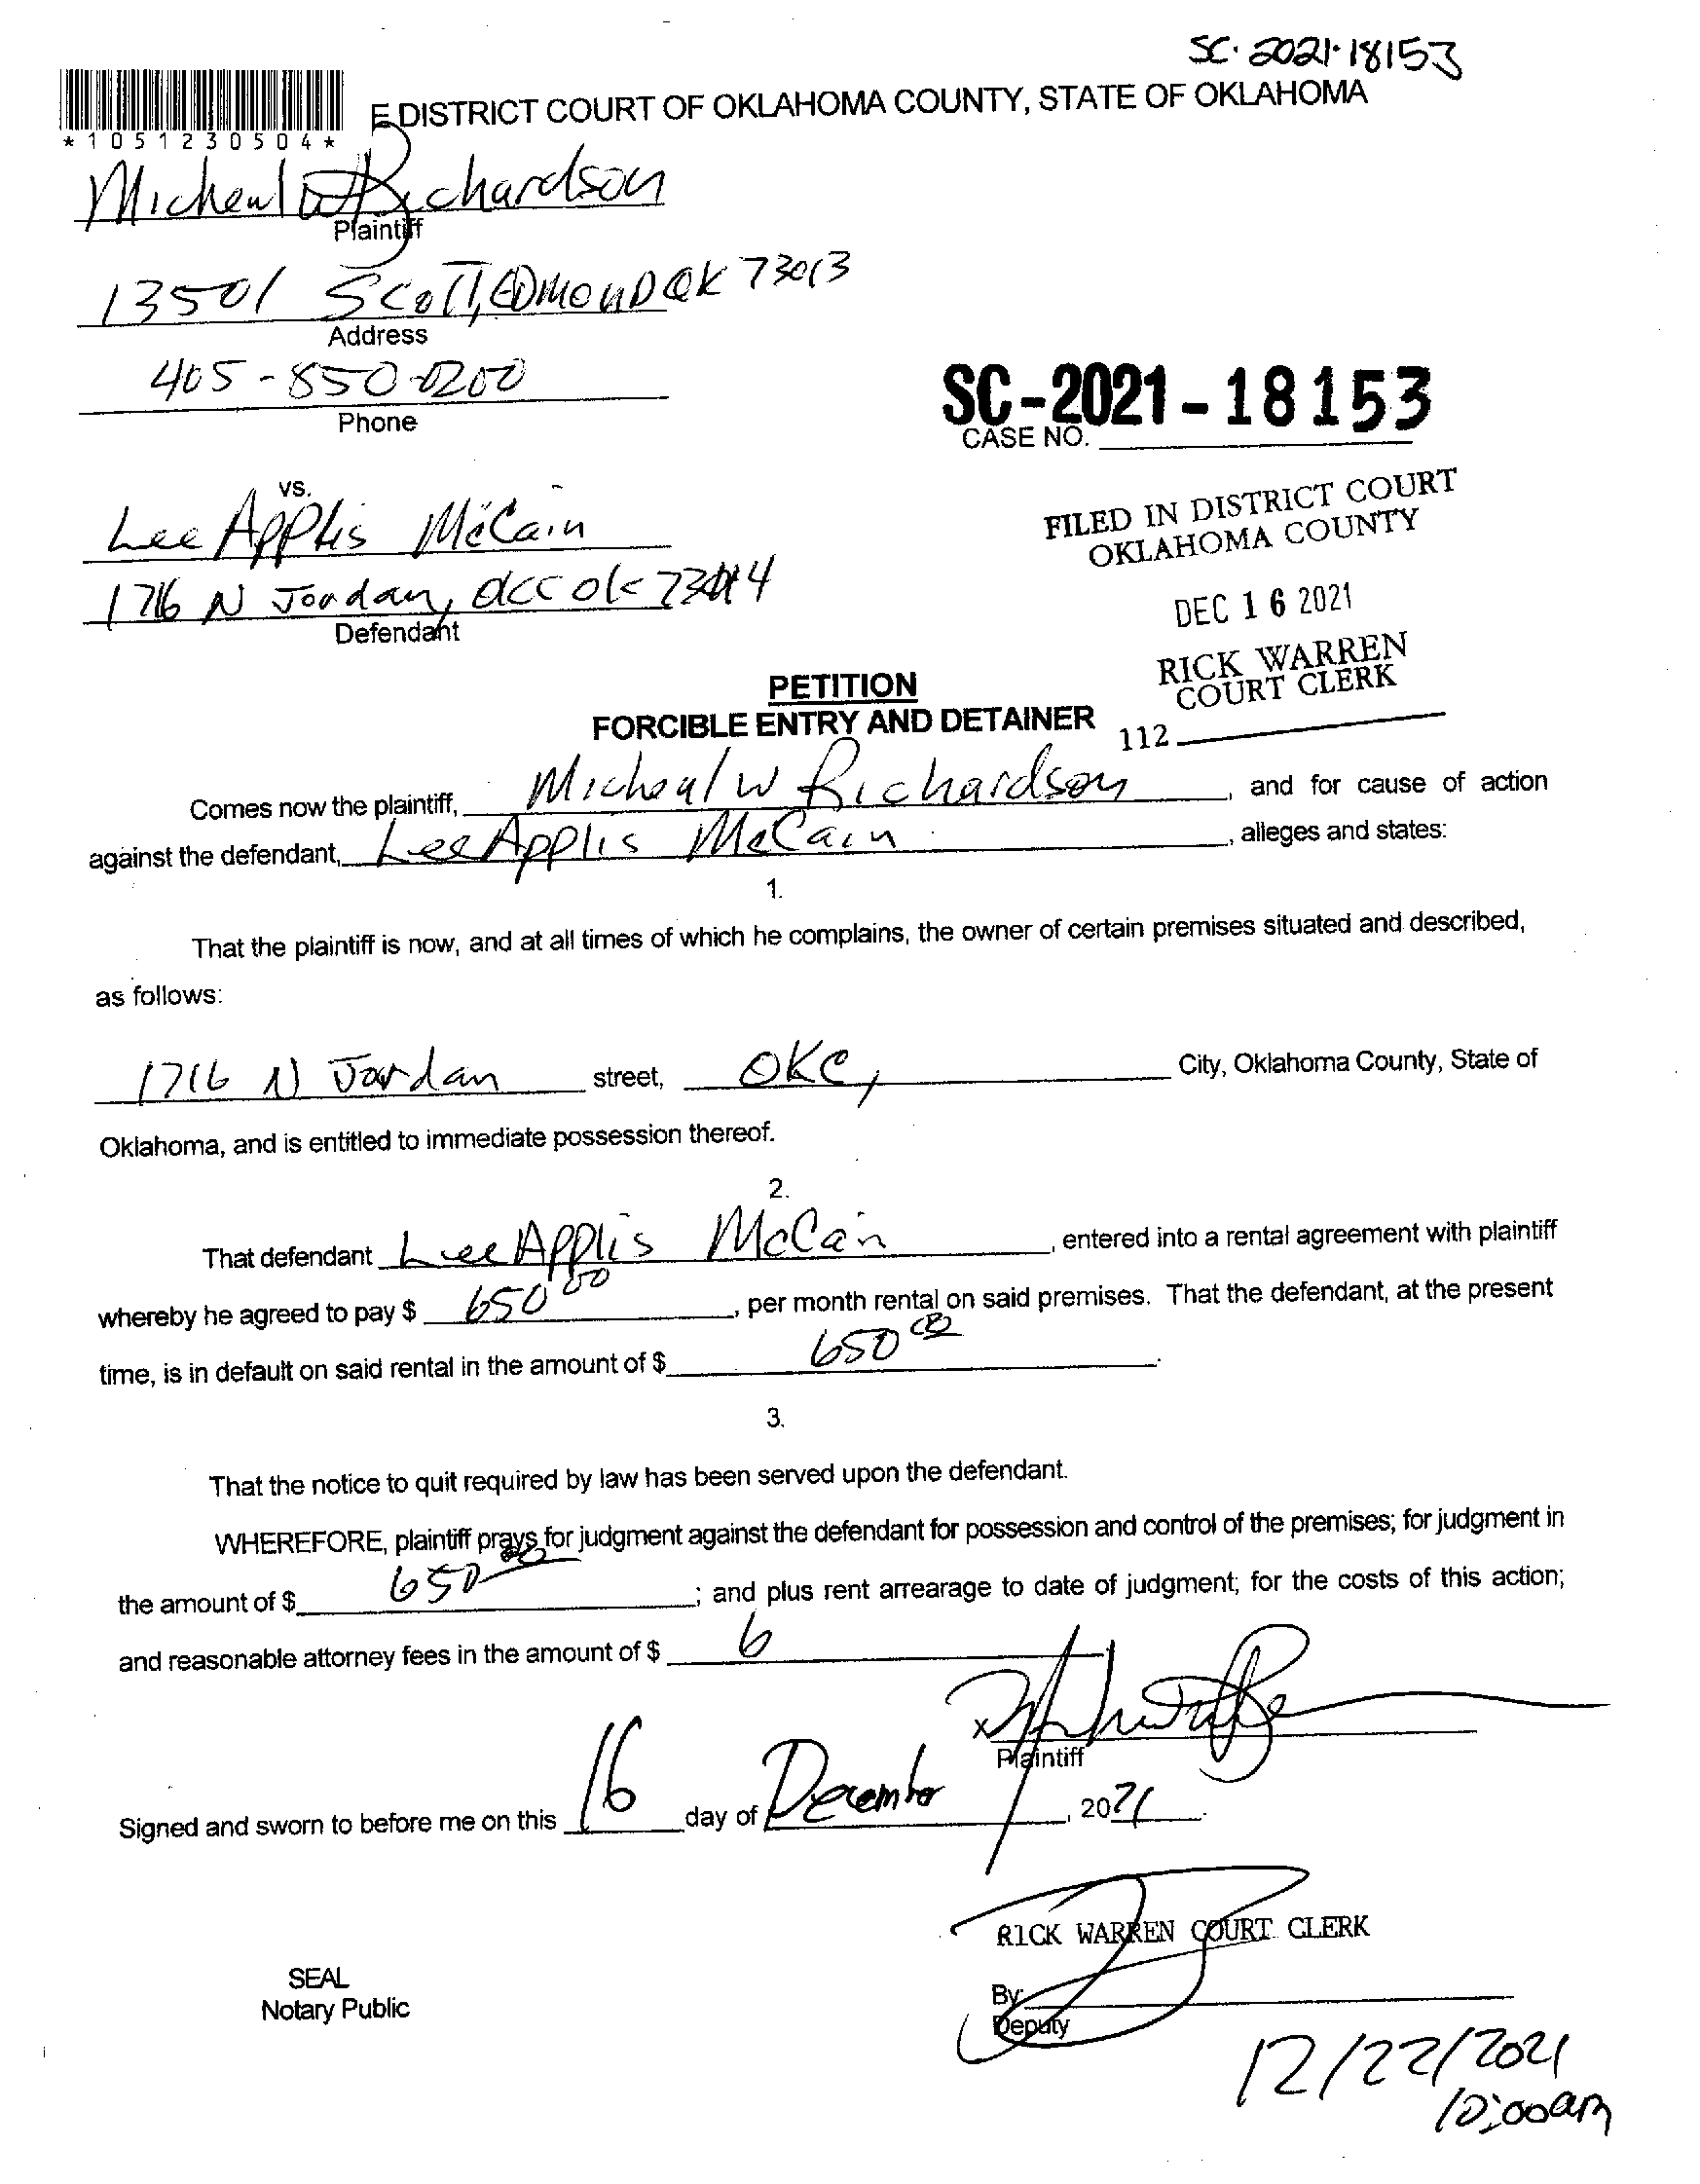 SC-2021-18153
E DISTRICT COURT OF OKLAHOMA COUNTY, STATE OF OKLAHOMA
*1051230504*
Micheal W Richardson
Plaintiff
13501 Scott, EDMOND OK 73013
Address
405-850-0200
Phone
SC-2021-18153
CASE NO.
vs.
Lee Applis McCain
1716 N Jordan, OKC OK
Defendant
FILED IN DISTRICT COURT
OKLAHOMA COUNTY
DEC 16 2021
RICK WARREN
COURT CLERK
112
PETITION
FORCIBLE ENTRY AND DETAINER
Comes now the plaintiff, Micheal W Richardson, and for cause of action
against the defendant, Lee Applis McCain, alleges and states:
1.
That the plaintiff is now, and at all times of which he complains, the owner of certain premises situated and described,
as follows:
1716 N Jordan street, OKC, City, Oklahoma County, State of
Oklahoma, and is entitled to immediate possession thereof.
2.
That defendant Lee Applis McCain, entered into a rental agreement with plaintiff
whereby he agreed to pay $ 650 00, per month rental on said premises. That the defendant, at the present
time, is in default on said rental in the amount of $ 650 00.
3.
That the notice to quit required by law has been served upon the defendant.
WHEREFORE, plaintiff prays for judgment against the defendant for possession and control of the premises; for judgment in
the amount of $ 650 00; and plus rent arrearage to date of judgment; for the costs of this action;
and reasonable attorney fees in the amount of $
x
Plaintiff
Signed and sworn to before me on this 16 day of December, 2021.
RICK WARREN COURT CLERK
SEAL
Notary Public
By:
Deputy
12/22/2021
10:00am